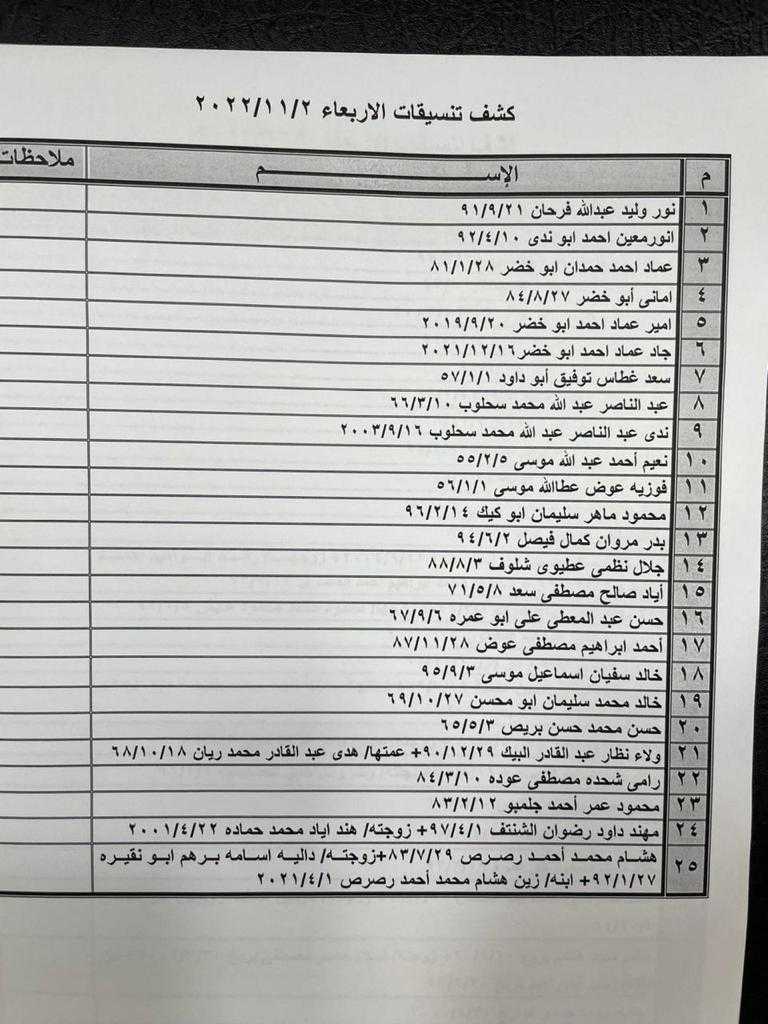 كشف تنسيقات الاربعاء ٢٠٢٢/١١/٢
م الإســـــــــــم ملاحظات
١ نور وليد عبدالله فرحان ٩١/٩/٢١
٢ انورمعين احمد ابو ندى ٩٢/٤/١٠
٣ عماد احمد حمدان ابو خضر ٨١/١/٢٨
٤ امانى أبو خضر ٨٤/٨/٢٧
٥ امير عماد احمد ابو خضر ٢٠١٩/٩/٢٠
٦ جاد عماد احمد ابو خضر٢٠٢١/١٢/١٦
٧ سعد غطاس توفيق أبو داود ٥٧/١/١
٨ عبد الناصر عبد الله محمد سحلوب ٦٦/٣/١٠
٩ ندى عبد الناصر عبد الله محمد سحلوب ٢٠٠٣/٩/١٦
١٠ نعيم أحمد عبد الله موسى ٥٥/٢/٥
١١ فوزيه عوض عطاالله موسى ٥٦/١/١
١٢ محمود ماهر سليمان ابو كيك ٩٦/٢/١٤
١٣ بدر مروان كمال فيصل ٩٤/٦/٢
١٤ جلال نظمى عطيوى شلوف ٨٨/٨/٣
١٥ أياد صالح مصطفى سعد ٧١/٥/٨
١٦ حسن عبد المعطى على ابو عمره ٦٧/٩/٦
١٧ أحمد ابراهيم مصطفى عوض ٨٧/١١/٢٨
١٨ خالد سفيان اسماعيل موسى ٩٥/٩/٣
١٩ خالد محمد سليمان ابو محسن ٦٩/١٠/٢٧
٢٠ حسن محمد حسن بريص ٦٥/٥/٣
٢١ ولاء نظار عبد القادر البيك ٩٠/١٢/٢٩+ عمتها/ هدى عبد القادر محمد ريان ٦٨/١٠/١٨
٢٢ رامى شحده مصطفى عوده ٨٤/٣/١٠
٢٣ محمود عمر أحمد جلمبو ٨٣/٢/١٢
٢٤ مهند داود رضوان الشنتف ٩٧/٤/١+ زوجته/ هند اياد محمد حماده ٢٠٠١/٤/٢٢
٢٥ هشام محمد أحمد رصرص ٨٣/٧/٢٩+زوجته/ داليه اسامه برهم ابو نقيره
٩٢/١/٢٧+ ابنه/ زين هشام محمد أحمد رصرص ٢٠٢١/٤/١